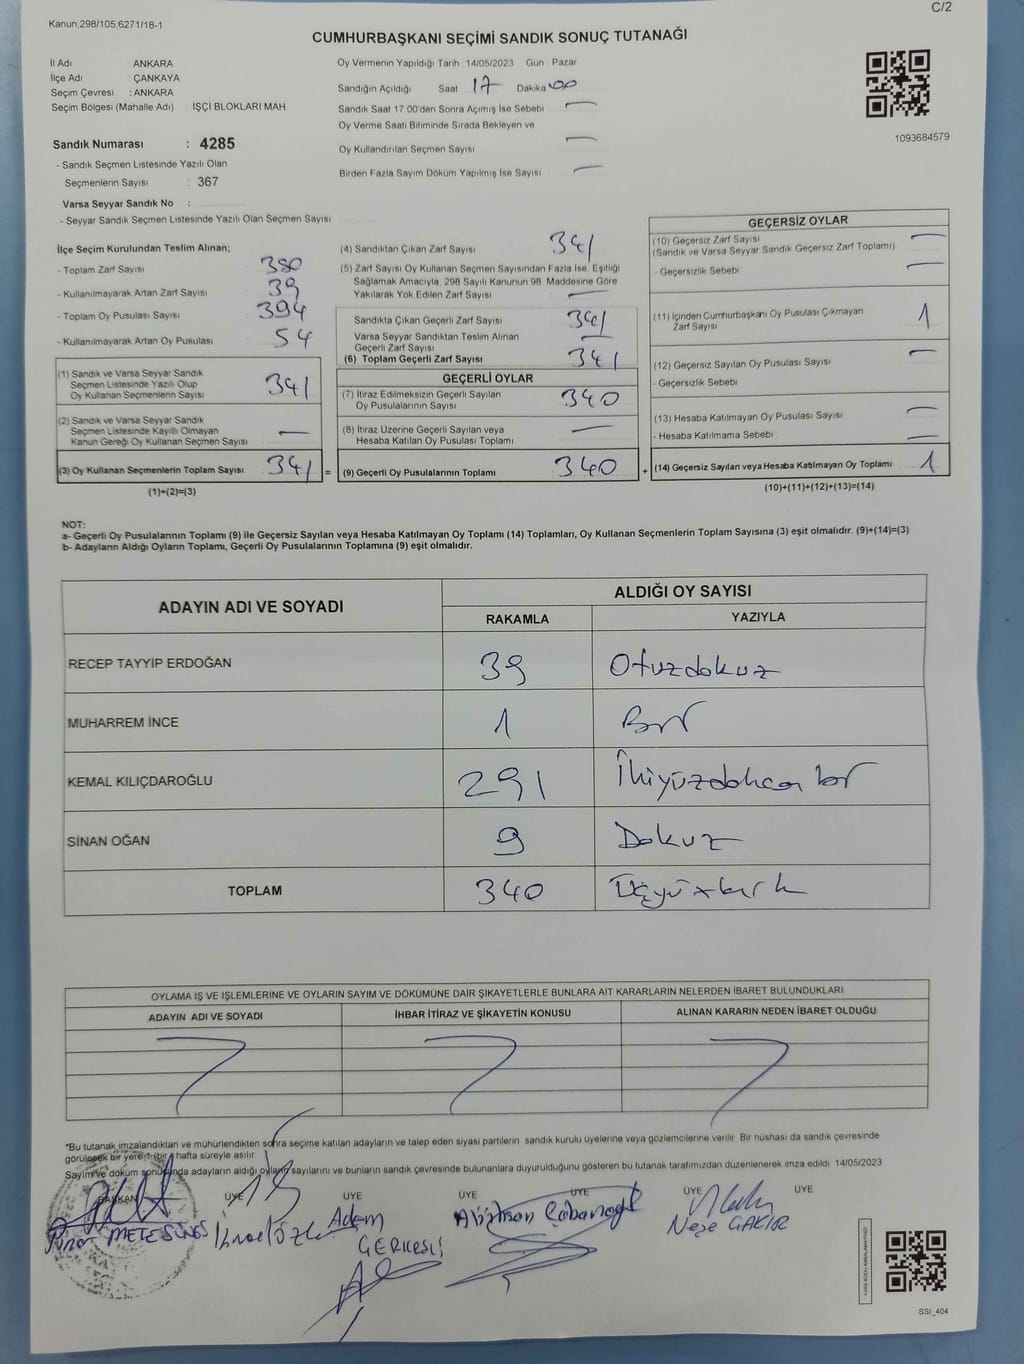 C/2
Kanun:298/105,6271/18-1
CUMHURBAŞKANI SEÇİMİ SANDIK SONUÇ TUTANAĞI
İl Adı : ANKARA
İlçe Adı : ÇANKAYA
Seçim Çevresi : ANKARA
Seçim Bölgesi (Mahalle Adı) : İŞÇİ BLOKLARI MAH.
Sandık Numarası : 4285
- Sandık Seçmen Listesinde Yazılı Olan
Seçmenlerin Sayısı : 367
Varsa Seyyar Sandık No :
- Seyyar Sandık Seçmen Listesinde Yazılı Olan Seçmen Sayısı
Oy Vermenin Yapıldığı Tarih 14/05/2023 Gün Pazar
Sandığın Açıldığı Saat 17 Dakika 00
Sandık Saat 17.00'den Sonra Açımış İse Sebebi —
Oy Verme Saati Bitiminde Sırada Bekleyen ve
Oy Kullandırılan Seçmen Sayısı —
Birden Fazla Sayım Döküm Yapılmış İse Sayısı —
1093684579
İlçe Seçim Kurulundan Teslim Alınan;
- Toplam Zarf Sayısı 380
- Kullanılmayarak Artan Zarf Sayısı 39
- Toplam Oy Pusulası Sayısı 394
- Kullanılmayarak Artan Oy Pusulası 54
(1) Sandık ve Varsa Seyyar Sandık
Seçmen Listesinde Yazılı Olup
Oy Kullanan Seçmenlerin Sayısı 341
(2) Sandık ve Varsa Seyyar Sandık
Seçmen Listesinde Kayıtlı Olmayan
Kanun Gereği Oy Kullanan Seçmen Sayısı —
(3) Oy Kullanan Seçmenlerin Toplam Sayısı 341 =
(1)+(2)=(3)
(4) Sandıktan Çıkan Zarf Sayısı 341
(5) Zarf Sayısı Oy Kullanan Seçmen Sayısından Fazla İse, Eşitliği
Sağlamak Amacıyla, 298 Sayılı Kanunun 98. Maddesine Göre
Yakılarak Yok Edilen Zarf Sayısı —
Sandıkta Çıkan Geçerli Zarf Sayısı 341
Varsa Seyyar Sandıktan Teslim Alınan
Geçerli Zarf Sayısı —
(6) Toplam Geçerli Zarf Sayısı 341
GEÇERLİ OYLAR
(7) İtiraz Edilmeksizin Geçerli Sayılan
Oy Pusulalarının Sayısı 340
(8) İtiraz Üzerine Geçerli Sayılan veya
Hesaba Katılan Oy Pusulası Toplamı —
(9) Geçerli Oy Pusulalarının Toplamı 340 +
GEÇERSİZ OYLAR
(10) Geçersiz Zarf Sayısı —
(Sandık ve Varsa Seyyar Sandık Geçersiz Zarf Toplamı)
- Geçersizlik Sebebi —
(11) İçinden Cumhurbaşkanı Oy Pusulası Çıkmayan
Zarf Sayısı 1
(12) Geçersiz Sayılan Oy Pusulası Sayısı —
- Geçersizlik Sebebi
(13) Hesaba Katılmayan Oy Pusulası Sayısı —
- Hesaba Katılmama Sebebi —
(14) Geçersiz Sayılan veya Hesaba Katılmayan Oy Toplamı 1
(10)+(11)+(12)+(13)=(14)
NOT:
a- Geçerli Oy Pusulalarının Toplamı (9) ile Geçersiz Sayılan veya Hesaba Katılmayan Oy Toplamı (14) Toplamları, Oy Kullanan Seçmenlerin Toplam Sayısına (3) eşit olmalıdır. (9)+(14)=(3)
b- Adayların Aldığı Oyların Toplamı, Geçerli Oy Pusulalarının Toplamına (9) eşit olmalıdır.
ADAYIN ADI VE SOYADI ALDIĞI OY SAYISI
RAKAMLA YAZIYLA
RECEP TAYYİP ERDOĞAN 39 Otuzdokuz
MUHARREM İNCE 1 Bir
KEMAL KILIÇDAROĞLU 291 İkiyüzdoksan bir
SİNAN OĞAN 9 Dokuz
TOPLAM 340 Üçyüzkırk
OYLAMA İŞ VE İŞLEMLERİNE VE OYLARIN SAYIM VE DÖKÜMÜNE DAİR ŞİKAYETLERLE BUNLARA AİT KARARLARIN NELERDEN İBARET BULUNDUKLARI
ADAYIN ADI VE SOYADI İHBAR İTİRAZ VE ŞİKAYETİN KONUSU ALINAN KARARIN NEDEN İBARET OLDUĞU
*Bu tutanak imzalandıktan ve mühürlendikten sonra seçime katılan adayların ve talep eden siyasi partilerin sandık kurulu üyelerine veya gözlemcilerine verilir. Bir nüshası da sandık çevresinde
görülecek bir yere 1(bir) hafta süreyle asılır.
Sayım ve döküm sonucunda adayların aldığı oyların sayılarını ve bunların sandık çevresinde bulunanlara duyurulduğunu gösteren bu tutanak tarafımızdan düzenlenerek imza edildi. 14/05/2023
BAŞKAN ÜYE ÜYE ÜYE ÜYE ÜYE ÜYE
Adem
GERKESLİ
Neşe ÇAKIR
SSI_404